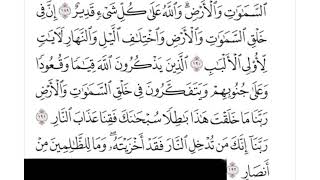 ٱلسَّمَٰوَٰتِ وَٱلۡأَرۡضِۗ وَٱللَّهُ عَلَىٰ كُلِّ شَيۡءٖ قَدِيرٌ ١٨٩ إِنَّ فِي
خَلۡقِ ٱلسَّمَٰوَٰتِ وَٱلۡأَرۡضِ وَٱخۡتِلَٰفِ ٱلَّيۡلِ وَٱلنَّهَارِ لَأٓيَٰتٖ
لِّأُوْلِي ٱلۡأَلۡبَٰبِ ١٩٠ ٱلَّذِينَ يَذۡكُرُونَ ٱللَّهَ قِيَٰمٗا وَقُعُودٗا
وَعَلَىٰ جُنُوبِهِمۡ وَيَتَفَكَّرُونَ فِي خَلۡقِ ٱلسَّمَٰوَٰتِ وَٱلۡأَرۡضِ
رَبَّنَا مَا خَلَقۡتَ هَٰذَا بَٰطِلٗا سُبۡحَٰنَكَ فَقِنَا عَذَابَ ٱلنَّارِ ١٩١
رَبَّنَآ إِنَّكَ مَن تُدۡخِلِ ٱلنَّارَ فَقَدۡ أَخۡزَيۡتَهُۥۖ وَمَا لِلظَّٰلِمِينَ مِنۡ
أَنصَارٖ ١٩٢